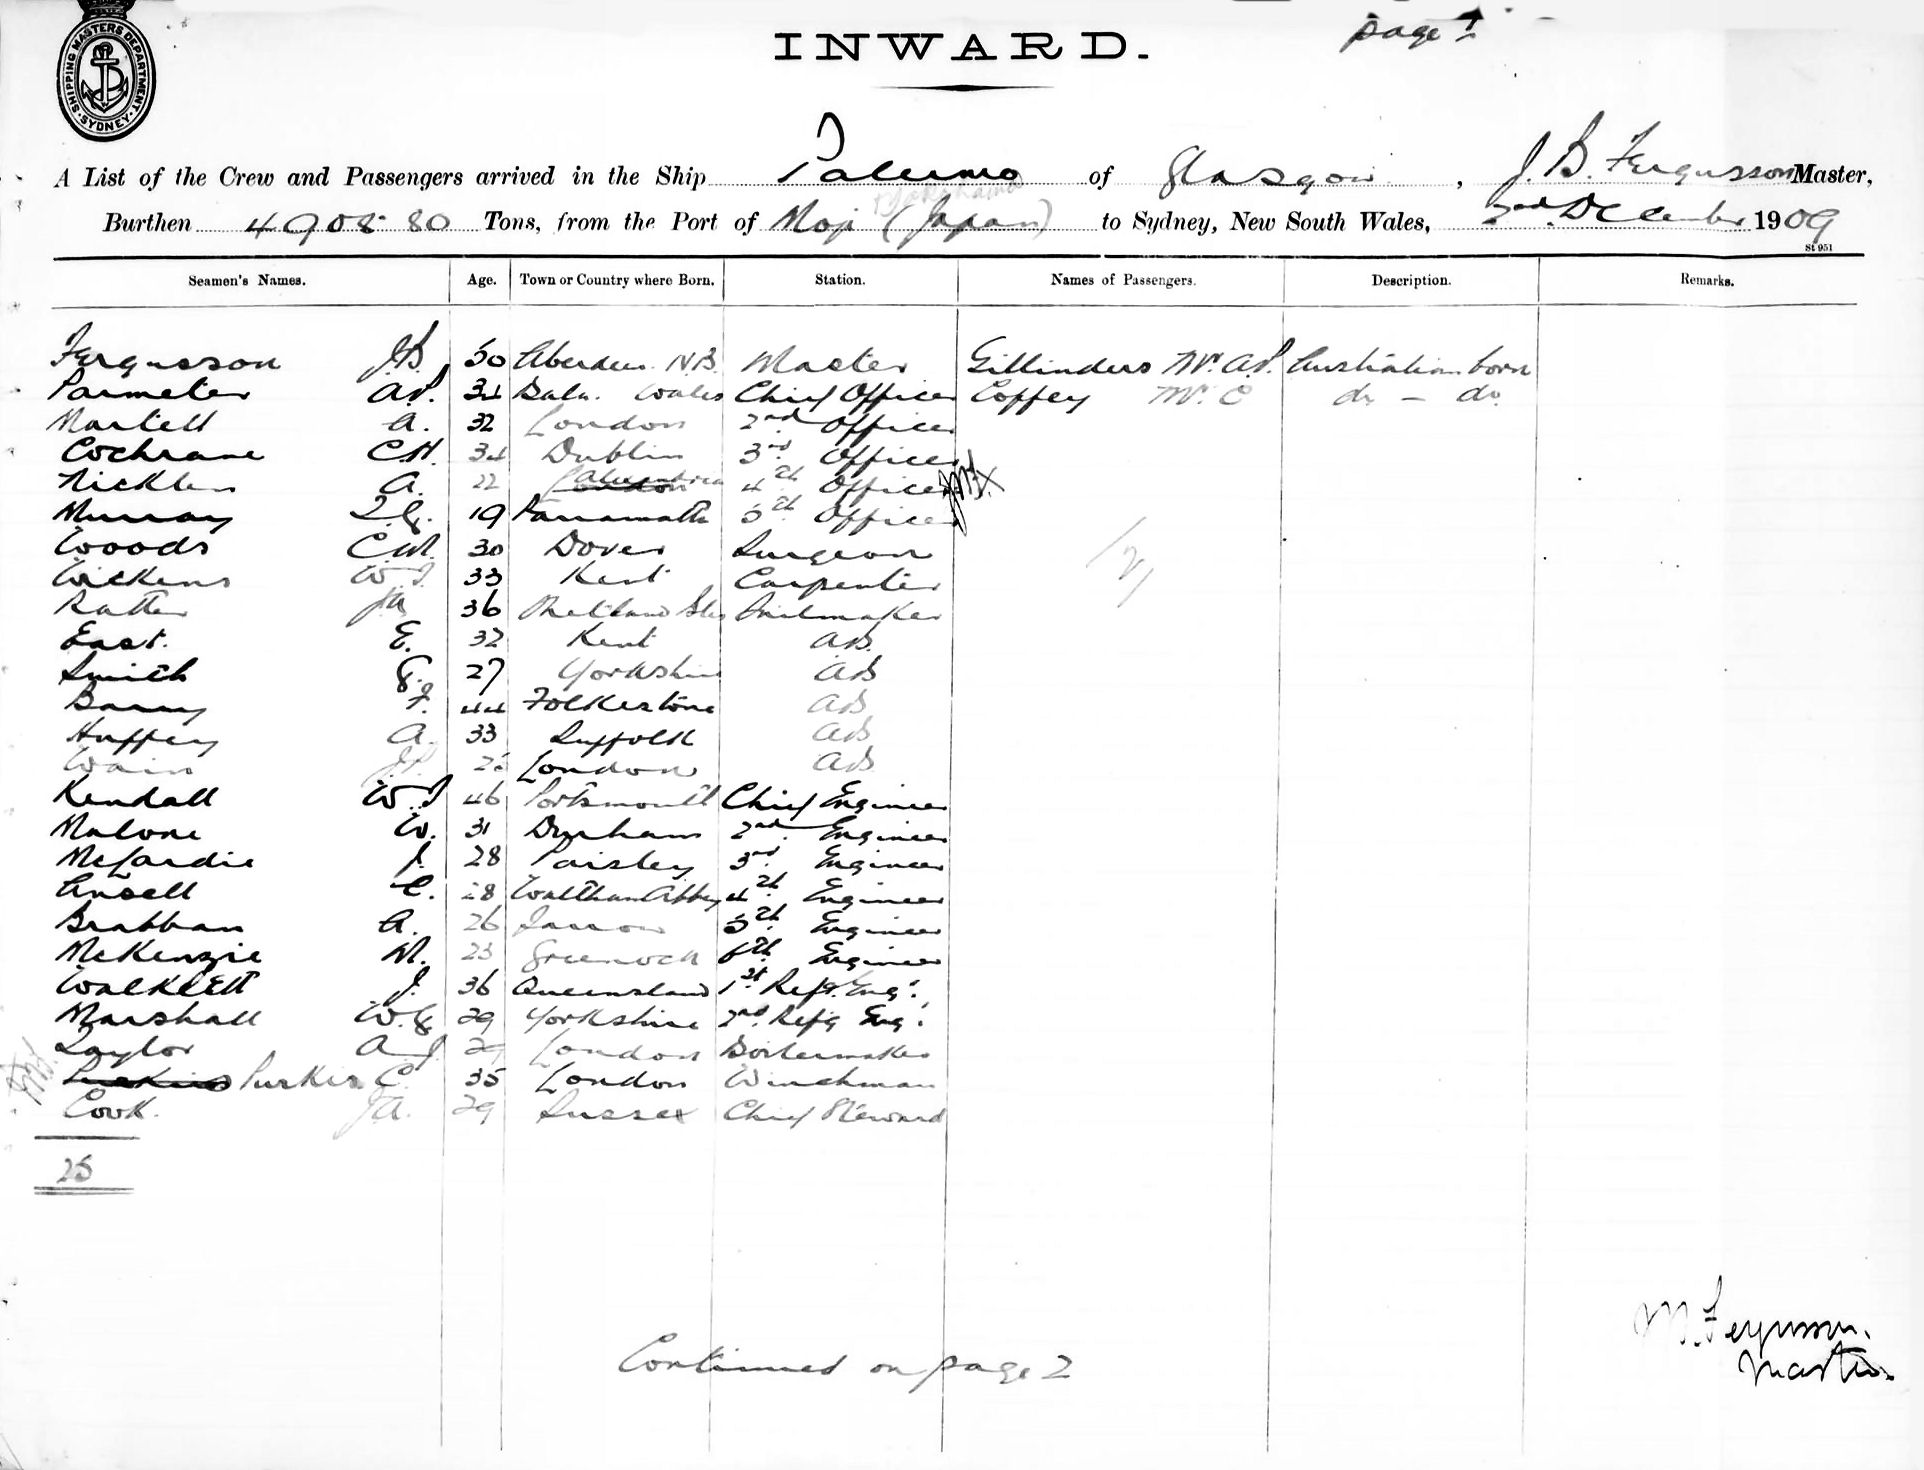 SHIPPING MASTERS DEPARTMENT
SYDNEY
page 1
INWARD.
A List of the Crew and Passengers arrived in the Ship Palermo of Glasgow, J. B. Fergusson Master,
& Yokohama
Burthen 4908·80 Tons, from the Port of Moji (Japan) to Sydney, New South Wales, 2nd December 1909
St 951
Seamen's Names. Age. Town or Country where Born. Station. Names of Passengers. Description. Remarks.
Fergusson J.B. 50 Aberdeen N.B. Master Gillinders Mr. A.P. Australian born
Parmeter A.P. 34 Wales Chief Officer Coffey Mr. C do — do
Martell A. 32 London 2nd Officer
Cochrane C.H. 34 Dublin 3rd Officer
Nicklen A. 22 London 4th Officer
Murray 19 Parramatta 5th Officer
Woods C.W. 30 Dover Surgeon
Wickens W.J. 33 Kent Carpenter
Ratter J.A. 36 Shetland Isles Sailmaker
East. E. 32 Kent AB.
Smith G. 27 Yorkshire AB
Barry F. 44 Folkestone AB
Huffey A. 33 Suffolk AB
Wain J.P. London AB
Kendall W.J 46 Portsmouth Chief Engineer
Malone W. 31 Durham 2nd Engineer
McLardie J. 28 Paisley 3rd Engineer
Ansell C. 28 Waltham Abbey 4th Engineer
Brabban A. 26 Jarrow 5th Engineer
McKenzie M. 23 Greenock 6th Engineer
Walklett J. 36 Queensland 1st Refg. Eng.
Marshall W.G 29 Yorkshire 2nd Refg Eng.
Taylor A J. 29 London Boilermaker
Perkins Purkis C. 35 London Winchman
Cook. J.A. 29 Sussex Chief Steward
25
Continued on page 2
Fergusson.
Master